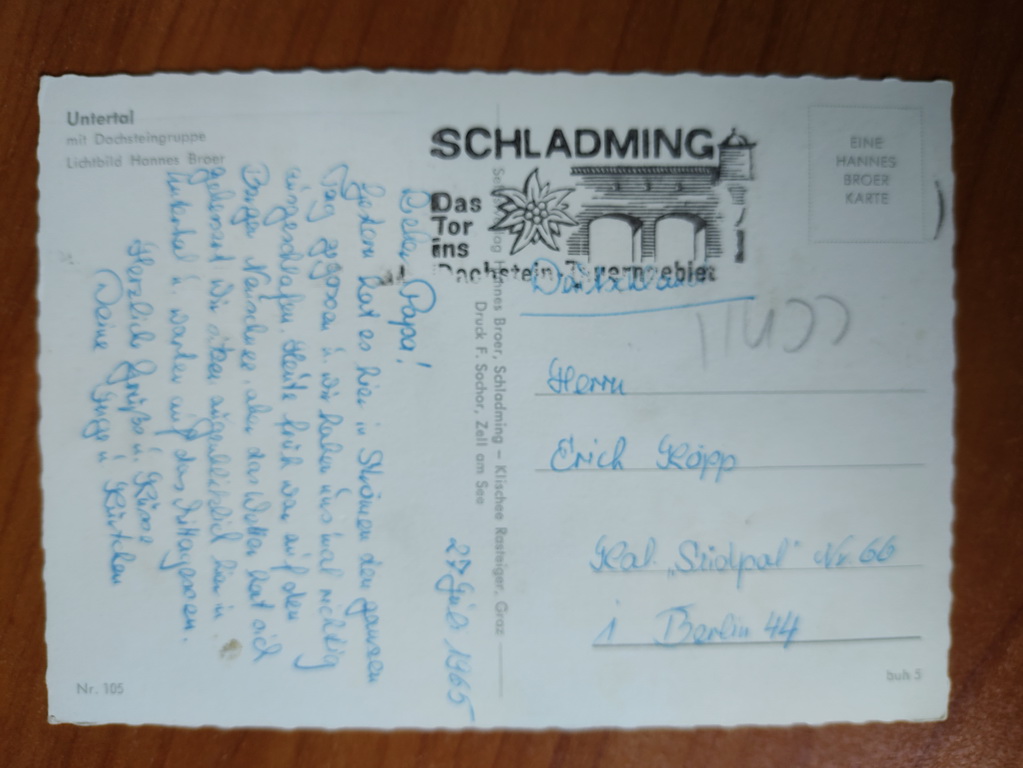 Untertal
mit Dachsteingruppe
Lichtbild Hannes Broer
SCHLADMING
Das
Tor
ins
Dachstein-Tauerngebiet
EINE
HANNES
BROER
KARTE
27 Juli 1965
Lieber Papa!
Gestern hat es hier in Strömen den ganzen
Tag gegossen u. wir haben uns mal richtig
ausgeschlafen. Heute früh war auf den
Bergen Neuschnee, aber das Wetter hat sich
gebessert. Wir sitzen augenblicklich hier in
Untertal u. warten auf das Mittagessen.
Herzlich Grüße u. Küsse
Deine Inge u.
Hannes Broer, Schladming – Klischee Rasteiger, Graz
Druck F. Sochor, Zell am See
Herrn
Erich Köpp
Kol. „Südpol" Nr. 66
1 Berlin 44
Nr. 105
buh 5